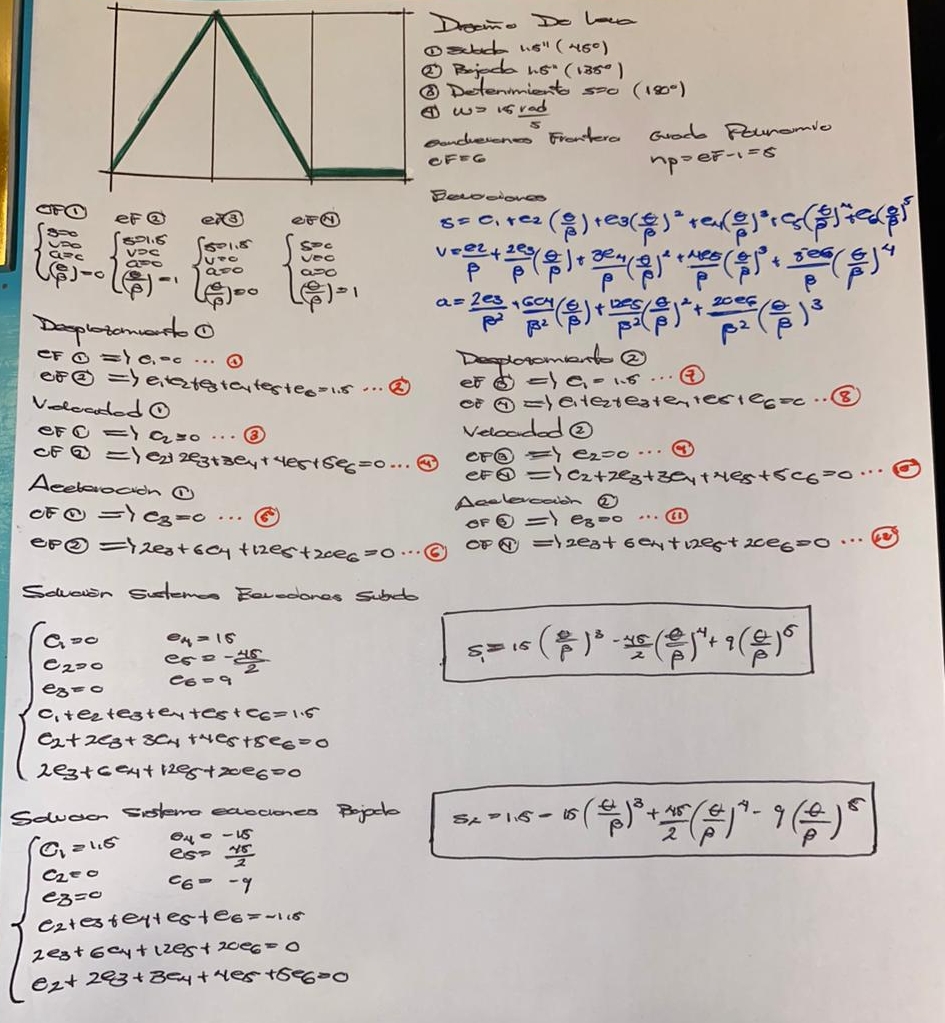 Diseño De Leva
① Subida 1.5" (45°)
② Bajada 1.5" (135°)
③ Detenimiento s=0 (180°)
④ w= 15 rad/s
Condiciones Frontera Grado Polinomio
CF=6 np=CF-1=5
Ecuaciones
S = C₁ + C₂(θ/β) + C₃(θ/β)² + C₄(θ/β)³ + C₅(θ/β)⁴ + C₆(θ/β)⁵
V = C₂/β + 2C₃/β(θ/β) + 3C₄/β(θ/β)² + 4C₅/β(θ/β)³ + 5C₆/β(θ/β)⁴
a = 2C₃/β² + 6C₄/β²(θ/β) + 12C₅/β²(θ/β)² + 20C₆/β²(θ/β)³
CF① { s=0 v=0 a=0 (θ/β)=0
CF② { s=1.5 v=0 a=0 (θ/β)=1
CF③ { s=1.5 v=0 a=0 (θ/β)=0
CF④ { s=0 v=0 a=0 (θ/β)=1
Desplazamiento ①
CF① => C₁=0 ... ①
CF② => C₁+C₂+C₃+C₄+C₅+C₆=1.5 ... ②
Velocidad ①
CF① => C₂=0 ... ③
CF② => C₂+2C₃+3C₄+4C₅+5C₆=0 ... ④
Aceleración ①
CF① => C₃=0 ... ⑤
CF② => 2C₃+6C₄+12C₅+20C₆=0 ... ⑥
Desplazamiento ②
CF③ => C₁=1.5 ... ⑦
CF④ => C₁+C₂+C₃+C₄+C₅+C₆=0 ... ⑧
Velocidad ②
CF③ => C₂=0 ... ⑨
CF④ => C₂+2C₃+3C₄+4C₅+5C₆=0 ... ⑩
Aceleración ②
CF③ => C₃=0 ... ⑪
CF④ => 2C₃+6C₄+12C₅+20C₆=0 ... ⑫
Solución Sistemas Ecuaciones Subida
C₁=0 C₄=15
C₂=0 C₅=-45/2
C₃=0 C₆=9
C₁+C₂+C₃+C₄+C₅+C₆=1.5
C₂+2C₃+3C₄+4C₅+5C₆=0
2C₃+6C₄+12C₅+20C₆=0
S₁=15(θ/β)³-45/2(θ/β)⁴+9(θ/β)⁵
Solucion Sistema ecuaciones Bajada
C₁=1.5 C₄=-15
C₂=0 C₅=45/2
C₃=0 C₆=-9
C₂+C₃+C₄+C₅+C₆=-1.5
2C₃+6C₄+12C₅+20C₆=0
C₂+2C₃+3C₄+4C₅+5C₆=0
S₂=1.5-15(θ/β)³+45/2(θ/β)⁴-9(θ/β)⁵